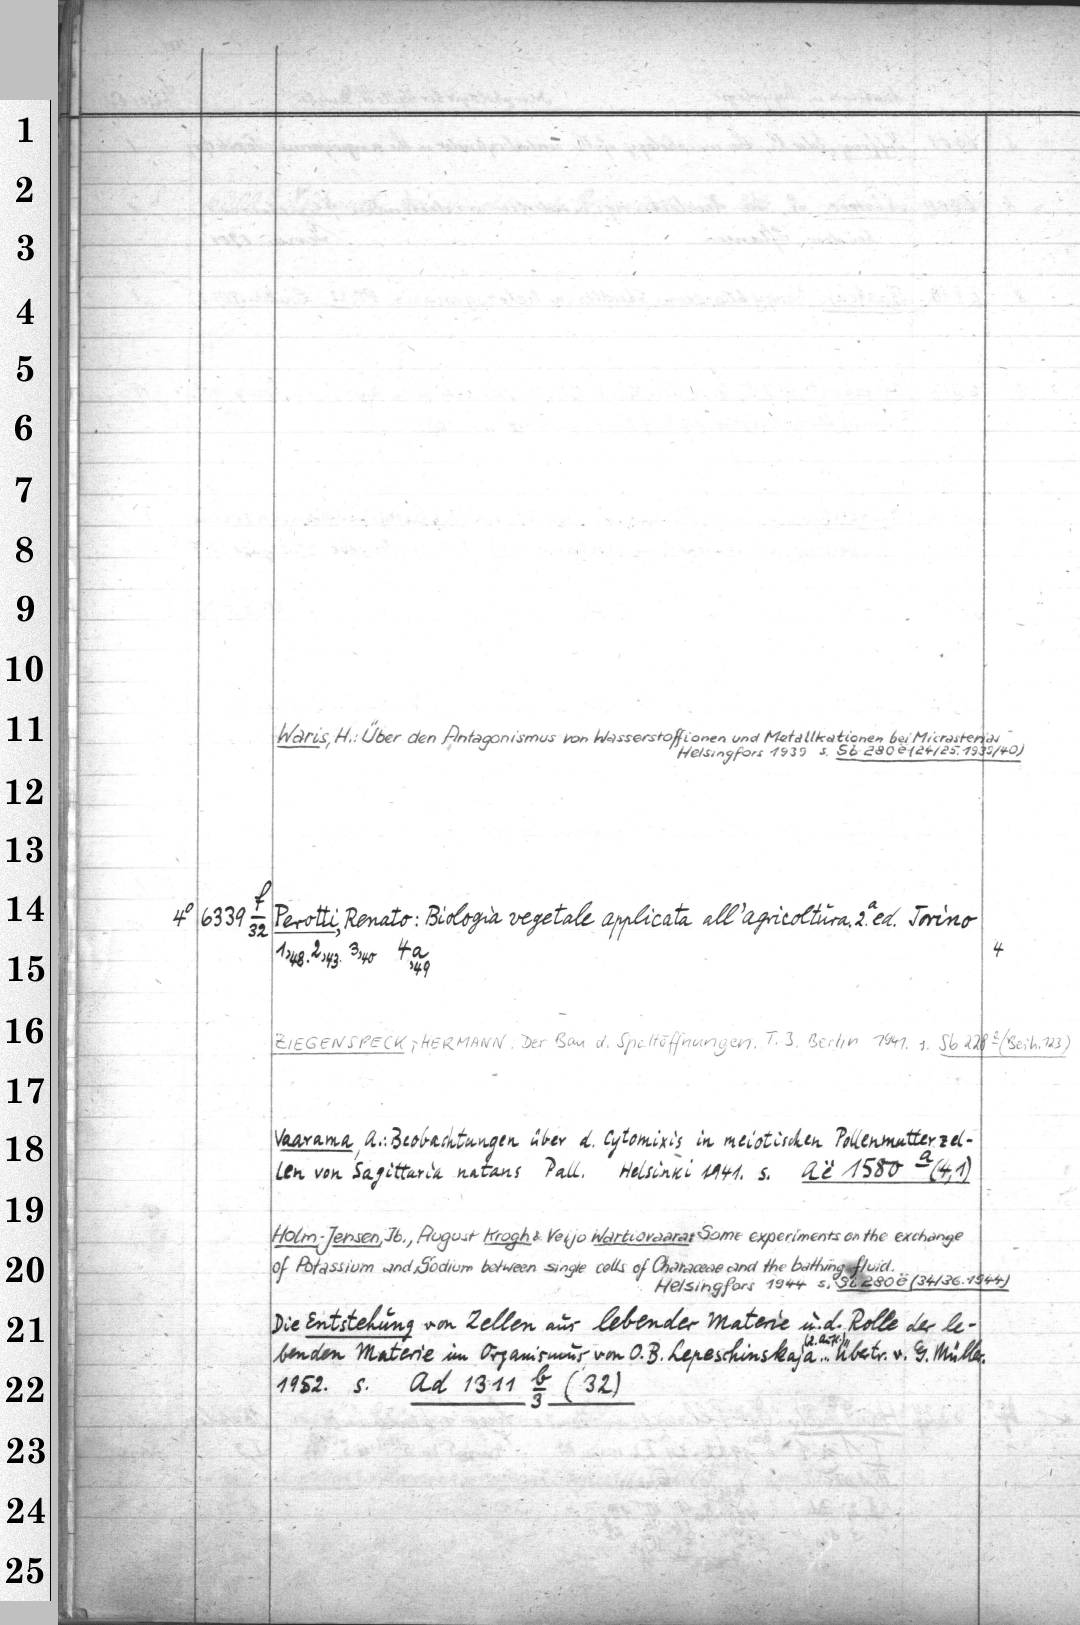 1
2
3
4
5
6
7
8
9
10
11
Waris, H.: Über den Antagonismus von Wasserstoffionen und Metallkationen bei Micrasterias
Helsingfors 1939 s. Sb 280 ë (24/25.1939/40)
12
13
14
4° 6339 f/32 Perotti, Renato: Biologia vegetale applicata all'agricoltura. 2.a ed. Torino
1,48. 2,43. 3,40 4a,49 4
15
16
ZIEGENSPECK, HERMANN. Der Bau d. Spaltöffnungen. T. 3. Berlin 1941. s. Sb 228 (Beih. 123)
17
18
Vaarama, A.: Beobachtungen über d. Cytomixis in meiotischen Pollenmutterzel-
len von Sagittaria natans Pall. Helsinki 1941. s. Aë 1580 a (4,1)
19
Holm-Jensen, Ib., August Krogh & Veijo Wartiovaara: Some experiments on the exchange
20
of Potassium and Sodium between single cells of Characeae and the bathing fluid.
Helsingfors 1944 s. Sb 280 ë (34/36.1944)
21
Die Entstehung von Zellen aus lebender Materie u. d. Rolle der le-
benden Materie im Organismus, von O. B. Lepeschinskaja ... Übetr. v. G. Müller.
22
1952. s. Ad 1311 b/3 (32)
23
24
25